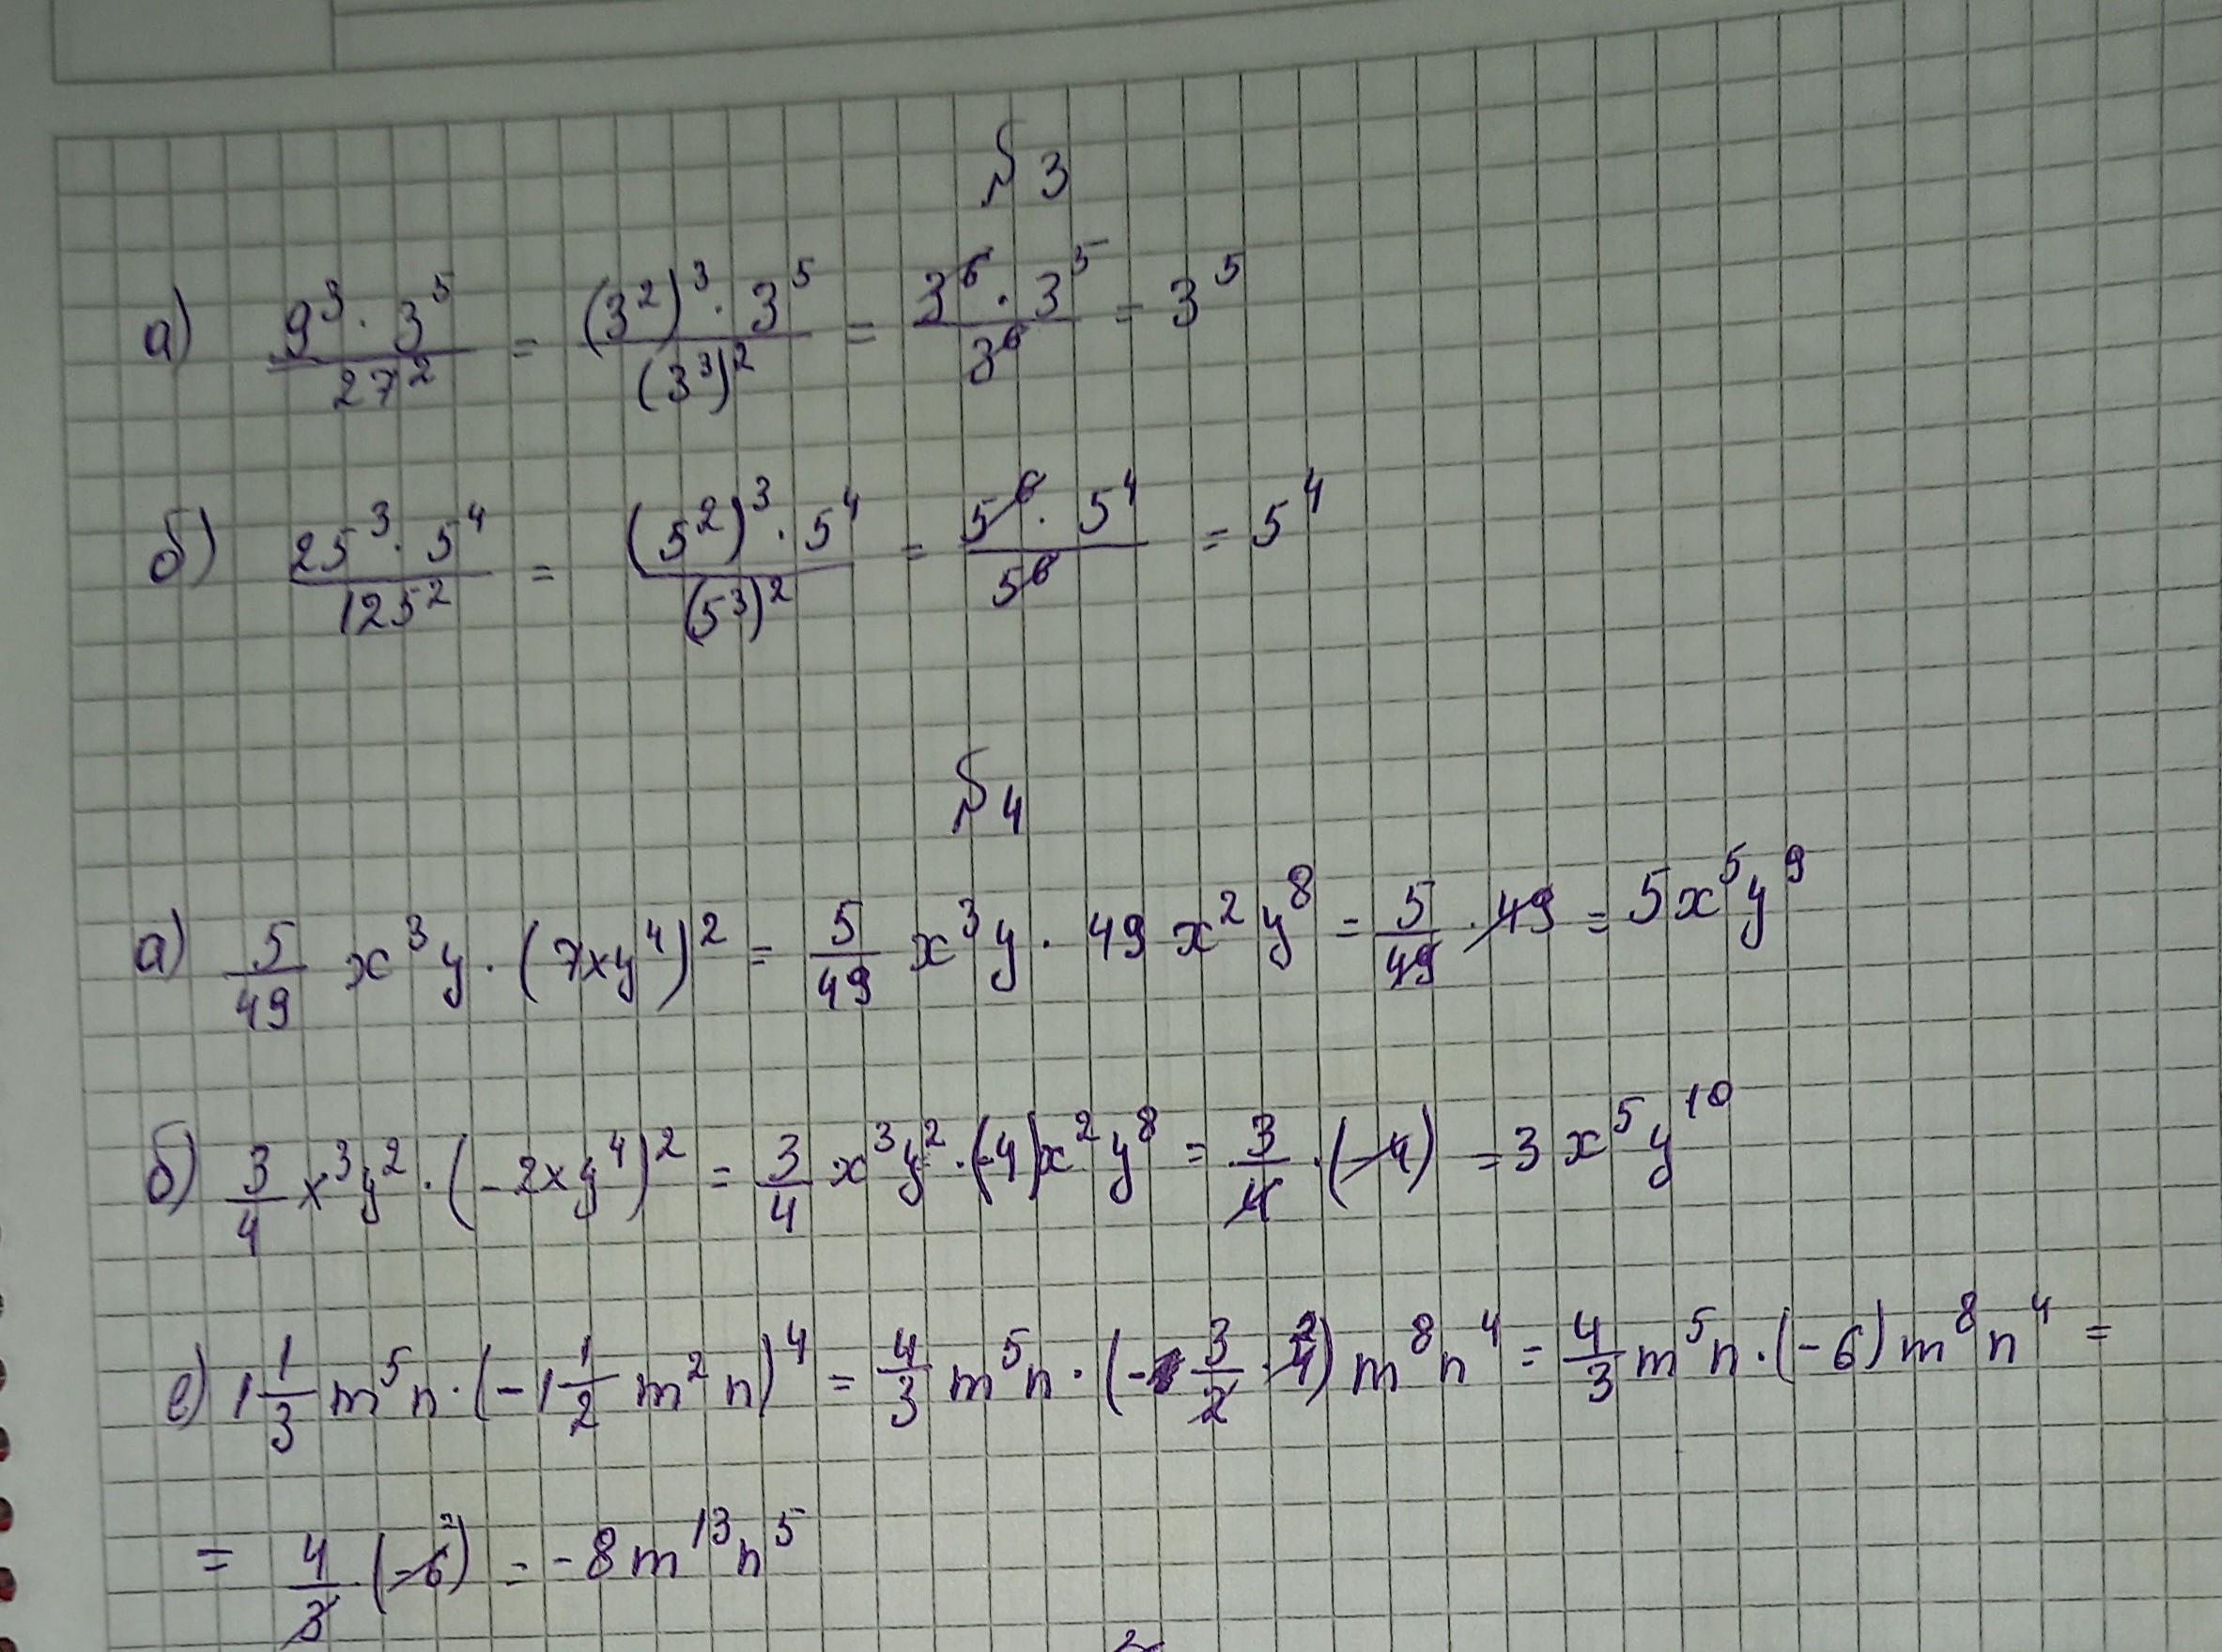 №3
а) 9³ · 3⁵ / 27² = (3²)³ · 3⁵ / (3³)² = 3⁶ · 3⁵ / 3⁶ = 3⁵
б) 25³ · 5⁴ / 125² = (5²)³ · 5⁴ / (5³)² = 5⁶ · 5⁴ / 5⁶ = 5⁴
№4
а) 5/49 x³y · (7xy⁴)² = 5/49 x³y · 49 x²y⁸ = 5/49 · 49 = 5x⁵y⁹
б) 3/4 x³y² · (-2xy⁴)² = 3/4 x³y² · (-4)x²y⁸ = 3/4 · (-4) = 3x⁵y¹⁰
в) 1 1/3 m⁵n · (-1 1/2 m²n)⁴ = 4/3 m⁵n · (- 3/2 · 4 2) m⁸n⁴ = 4/3 m⁵n · (-6) m⁸n⁴ =
= 4/3 · (-6 2) = -8m¹³n⁵